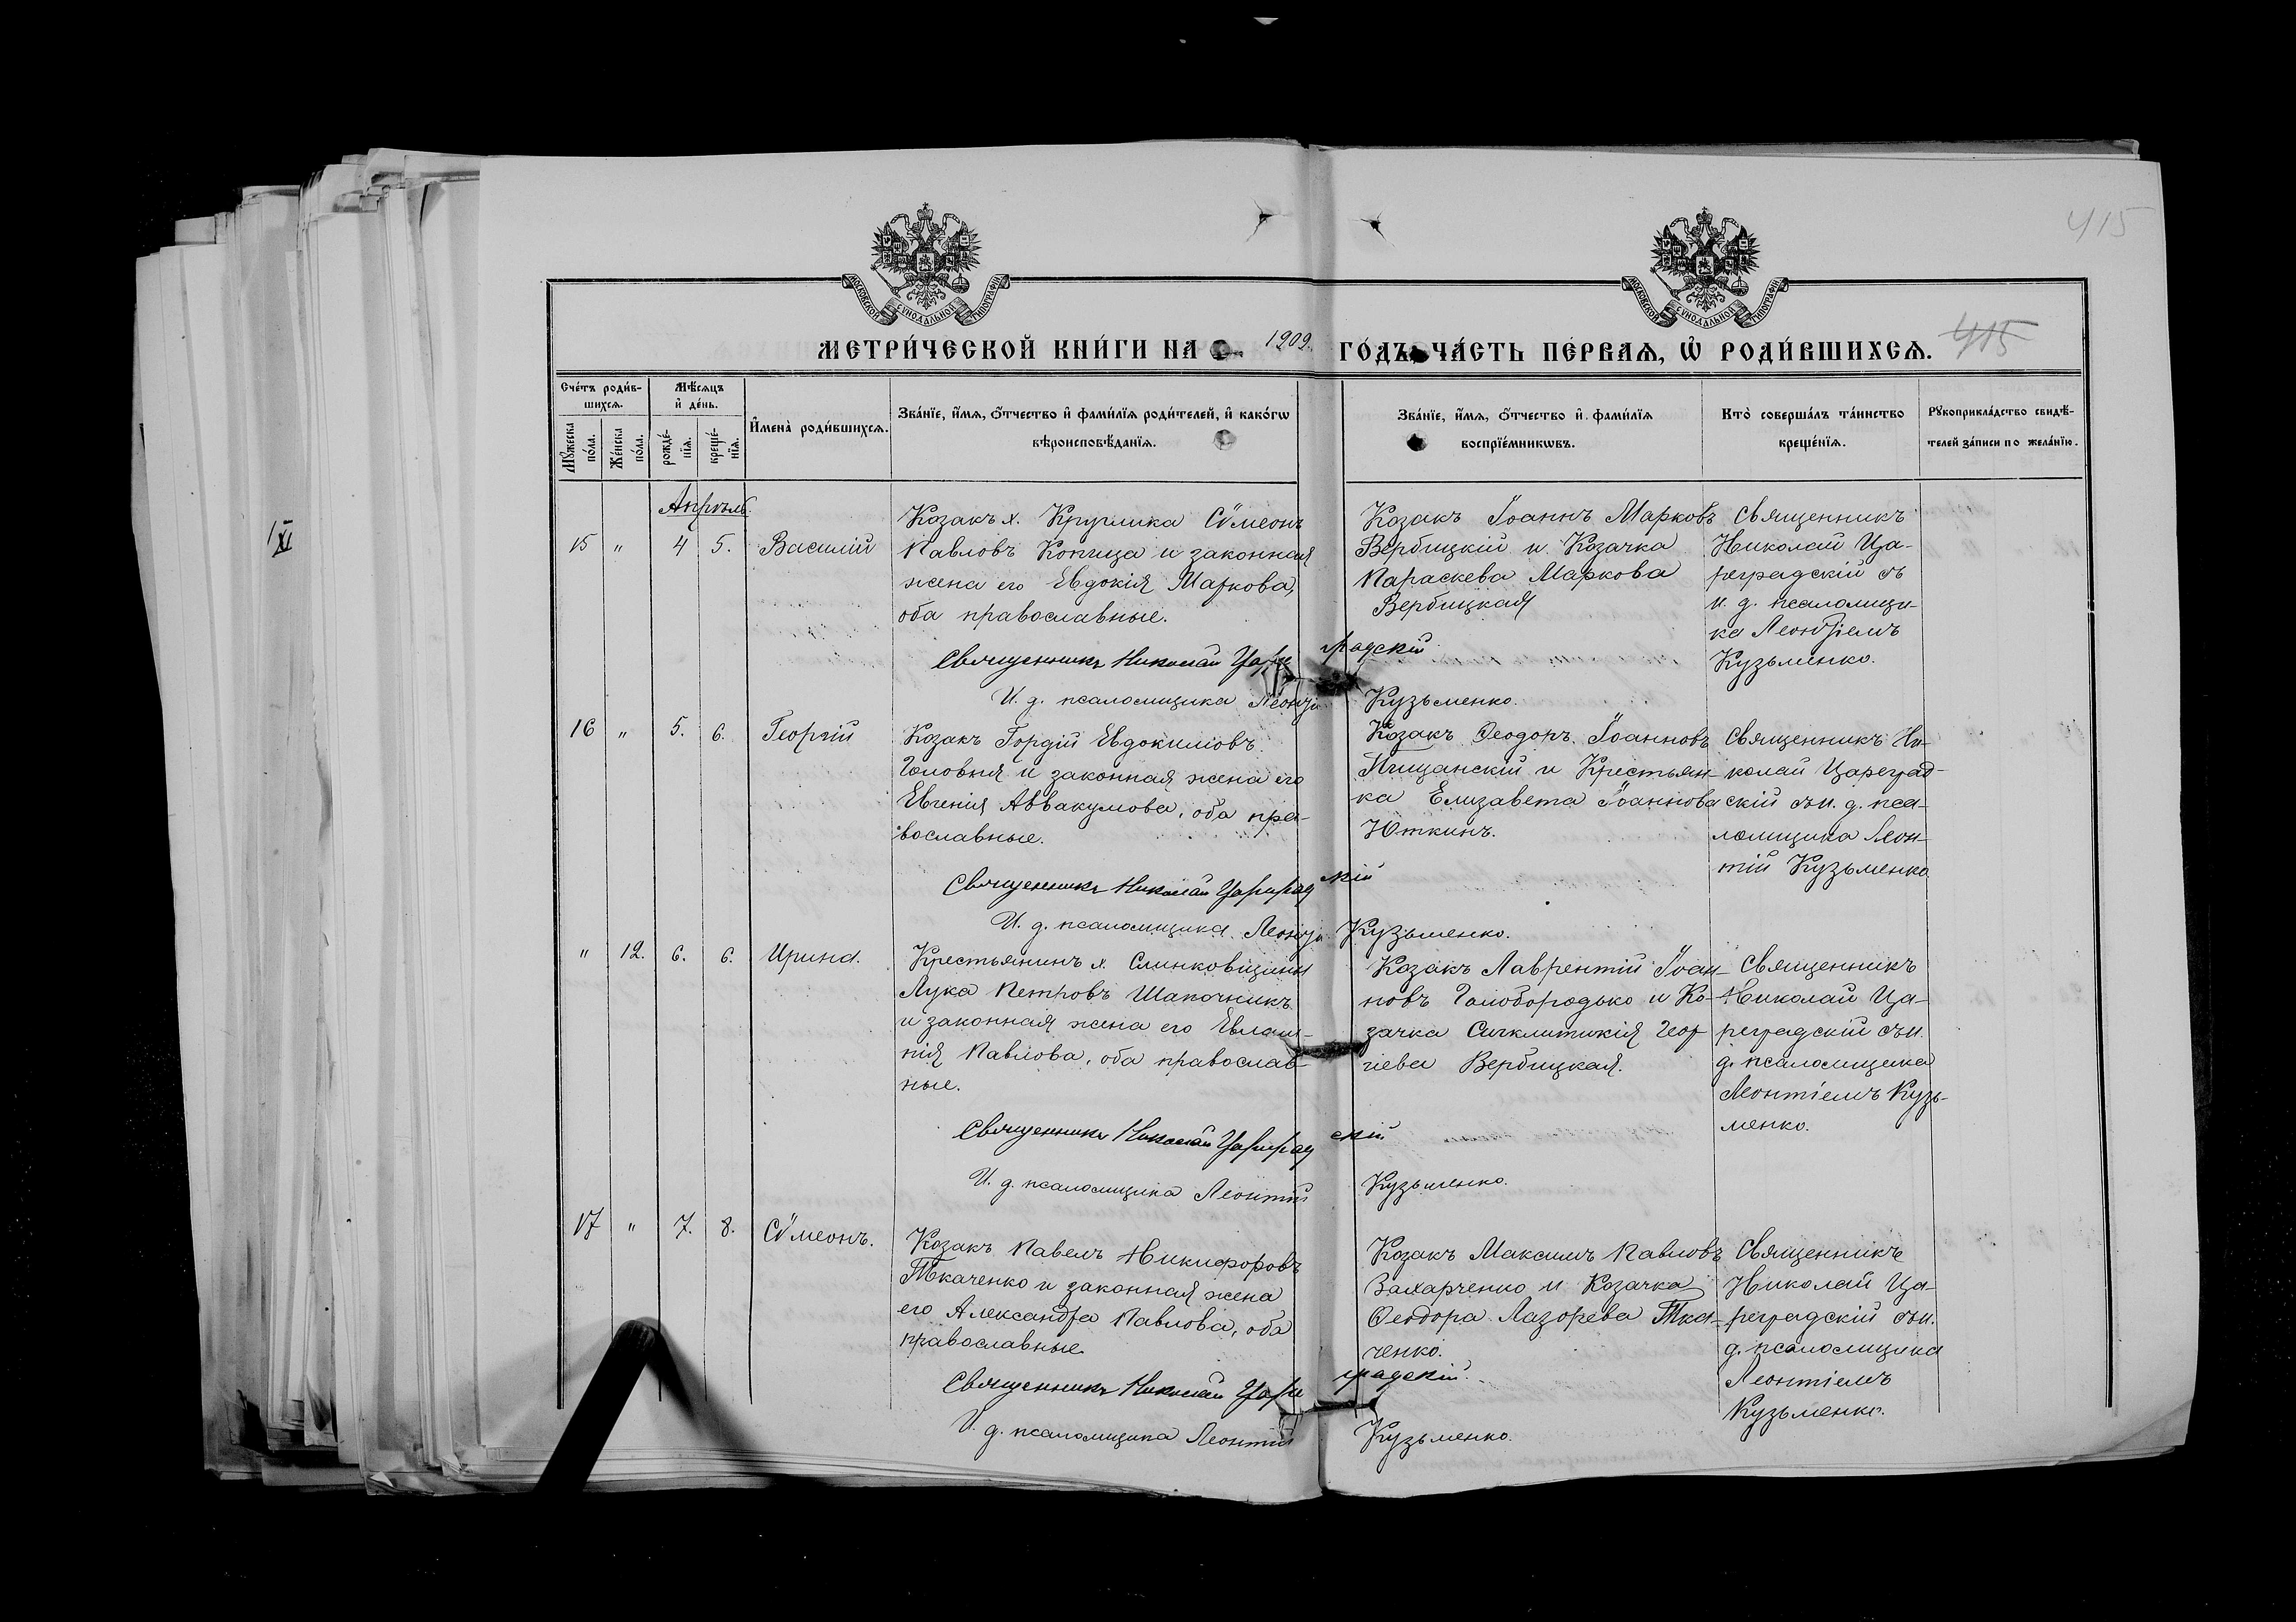 415
МОСКОВСКОЙ СУНОДАЛЬНОЙ ТИПОГРАФІИ
МОСКОВСКОЙ СУНОДАЛЬНОЙ ТИПОГРАФІИ
МЕТРИ́ЧЕСКОЙ КНИ́ГИ НА 1909. ГО́ДЪ ЧА́СТЬ ПЕ́РВАѦ, Ѡ҆ РОДИ́ВШИХСѦ. 415
Счетъ роди́в-
шихсѧ.
Мꙋжеска
по́ла.
Же́нска
по́ла.
Мѣ́сѧцъ
и҆ де́нь.
рожде́-
нїѧ.
креще́-
нїѧ.
И҆мена̀ роди́вшихсѧ.
Зва́нїе, и҆́мѧ, ѻ҆́тчество и҆ фами́лїѧ роди́телей, и҆ како́гѡ
вѣроисповѣ́данїѧ.
Зва́нїе, и҆́мѧ, ѻ҆́тчество и҆ фами́лїѧ
воспрїе́мникѡвъ.
Кто̀ соверша́лъ та́инство
креще́нїѧ.
Рꙋкоприкла́дство свидѣ́-
телей за́писи по жела́нїю.
Апрѣль.
15 " 4 5. Василій
Козакъ х. Круглика Сѵмеонъ
Павловъ Копица и законная
жена его Евдокія Маркова,
оба православные.
Козакъ Іоаннъ Марковъ
Вербицкій и Козачка
Параскева Маркова
Вербицкая
Священникъ
Николай Ца-
реградскій съ
и. д. псаломщи-
ка Леонтіемъ
Кузьменко.
Священникъ Николай Цареградскій
И. д. псаломщика Леонтій Кузьменко.
16 " 5. 6. Георгій
Козакъ Гордій Евдокимовъ
Головня и законная жена его
Евгенія Аввакумова, оба пра-
вославные.
Козакъ Ѳеодоръ Іоанновъ
Пищанскій и Крестьян-
ка Елизавета Іоаннова
Юткинъ.
Священникъ Ни-
колай Цареград-
скій съ и. д. пса-
ломщика Леон-
тій Кузьменко
Священникъ Николай Цареградскій
И. д. псаломщика Леонтій Кузьменко.
" 12. 6. 6. Ирина.
Крестьянинъ х. Слинковщины
Лука Петровъ Шапочникъ
и законная жена его Евлам-
пія Павлова, оба православ-
ные.
Козакъ Лаврентій Іоан-
новъ Голобородько и Ко-
зачка Сигклитикія Геор
гіева Вербицкая.
Священникъ
Николай Ца-
реградскій съ и.
д. псаломщика
Леонтіемъ Кузь-
менко.
Священникъ Николай Цареградскій
И. д. псаломщика Леонтій Кузьменко.
17 " 7. 8. Сѵмеонъ.
Козакъ Павелъ Никифоровъ
Ткаченко и законная жена
его Александра Павлова, оба
православные.
Козакъ Максимъ Павловъ
Захарченко и Козачка
Ѳеодора Лазорева Тка-
ченко.
Священникъ
Николай Ца-
реградскій съ и.
д. псаломщика
Леонтіемъ
Кузьменко.
Священникъ Николай Цареградскій.
И. д. псаломщика Леонтій Кузьменко.